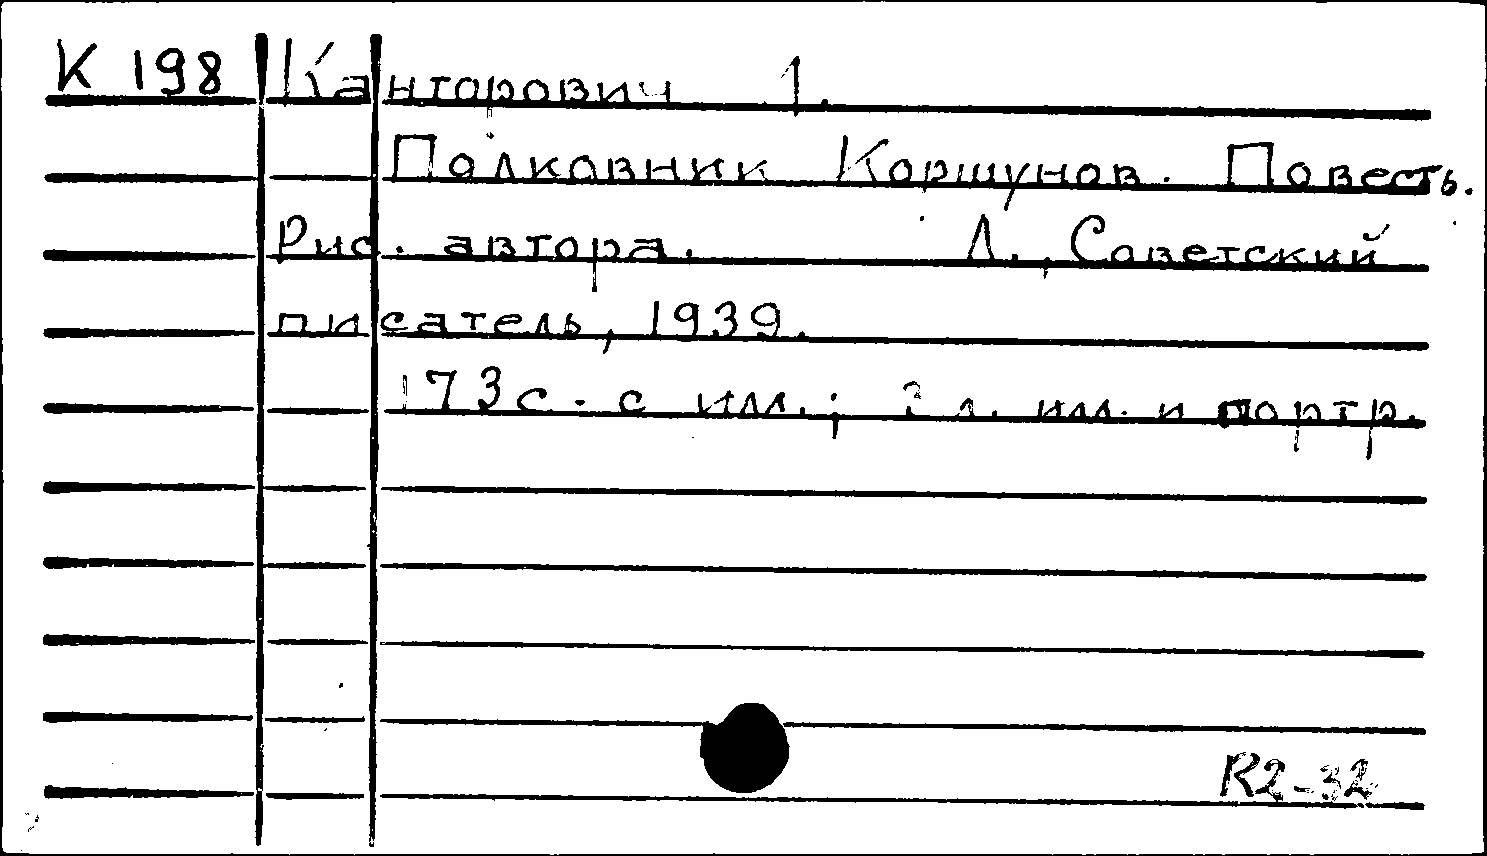 К 198 Канторович Л.
Полковник Коршунов. Повесть.
Рис. автора. Л., Советский
писатель, 1939.
173 с. с илл.; 3 л. илл. и портр.
R2-32